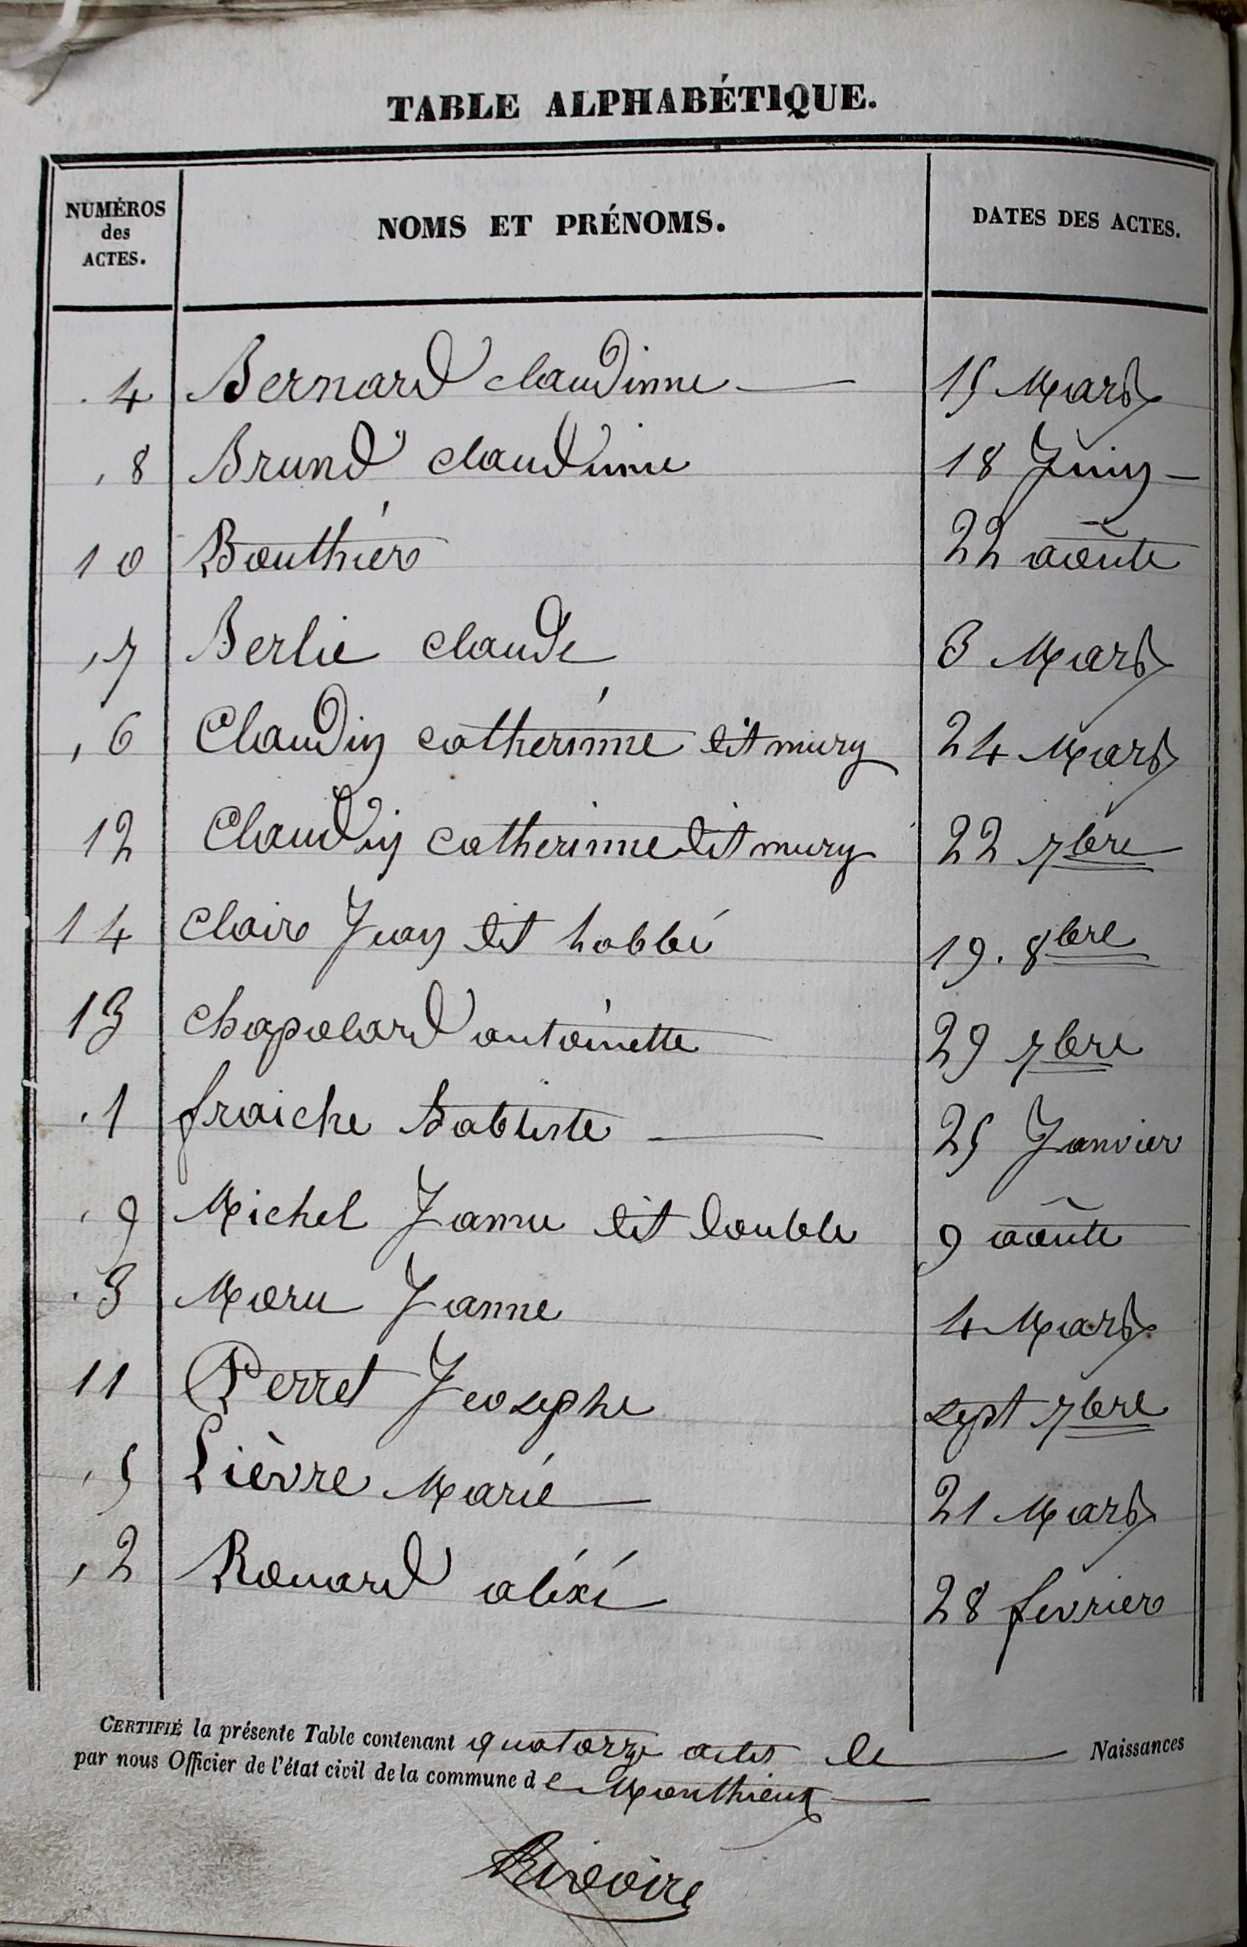 TABLE ALPHABÉTIQUE.
NUMÉROS des ACTES. NOMS ET PRÉNOMS. DATES DES ACTES.
4 Bernard claudinne 15 Mars
8 Brund claudinne 18 Juin
10 Bouthier 22 aoûte
7 Berlie claude 3 Mars
6 Claudin catherinne dit mury 24 Mars
12 Claudin catherinne dit mury 22 7bre
14 claire Juan dit habbé 19. 8bre
13 chapolard antoinette 29 7bre
1 fraiche Babtiste 25 Janvier
9 Michel Janne dit double 9 aoûte
3 Moru Janne 4 Mars
11 Perret Jeosephe sept 7bre
5 Lièvre Marie 21 Mars
2 Rouard aléxi 28 fevrier
CERTIFIÉ la présente Table contenant quatorze actes de Naissances
par nous Officier de l'état civil de la commune de Monthieux
Rivoire